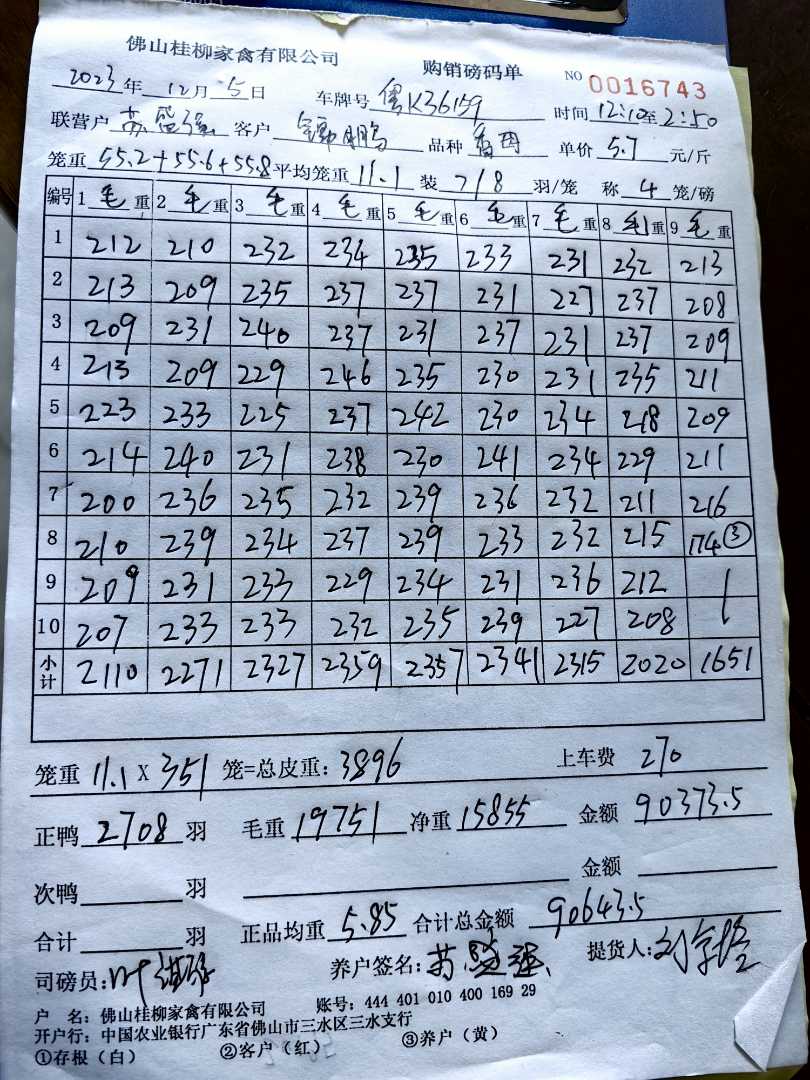 佛山桂柳家禽有限公司 购销磅码单 NO 0016743
2023年12月5日 车牌号 粤K36159 时间 12:10至2:50
联营户 苏 强 客户 鹏 品种 单价 5.7 元/斤
笼重 55.2+55.6+55.8 平均笼重 11.1 装 7/8 羽/笼 称 4 笼/磅
编号 1 毛 重 2 毛 重 3 毛 重 4 毛 重 5 毛 重 6 毛 重 7 毛 重 8 毛 重 9 毛 重
1 212 210 232 234 235 233 231 232 213
2 213 209 235 237 237 231 227 237 208
3 209 231 240 237 231 237 231 237 209
4 213 209 229 246 235 230 231 235 211
5 223 233 225 237 242 230 234 218 209
6 214 240 231 238 230 241 234 229 211
7 200 236 235 232 239 236 232 211 216
8 210 239 234 237 239 233 232 215 174③
9 209 231 233 229 234 231 236 212
10 207 233 233 232 235 239 227 208
小计 2110 2271 2327 2359 2357 2341 2315 2020 1651
笼重 11.1 X 351 笼=总皮重: 3896 上车费 270
正鸭 2708 羽 毛重 19751 净重 15855 金额 90373.5
次鸭 羽 金额
合计 羽 正品均重 5.85 合计总金额 90643.5
司磅员: 叶 养户签名: 苏 强 提货人: 刘
户 名: 佛山桂柳家禽有限公司 账号: 444 401 010 400 169 29
开户行: 中国农业银行广东省佛山市三水区三水支行
①存根（白） ②客户（红） ③养户（黄）